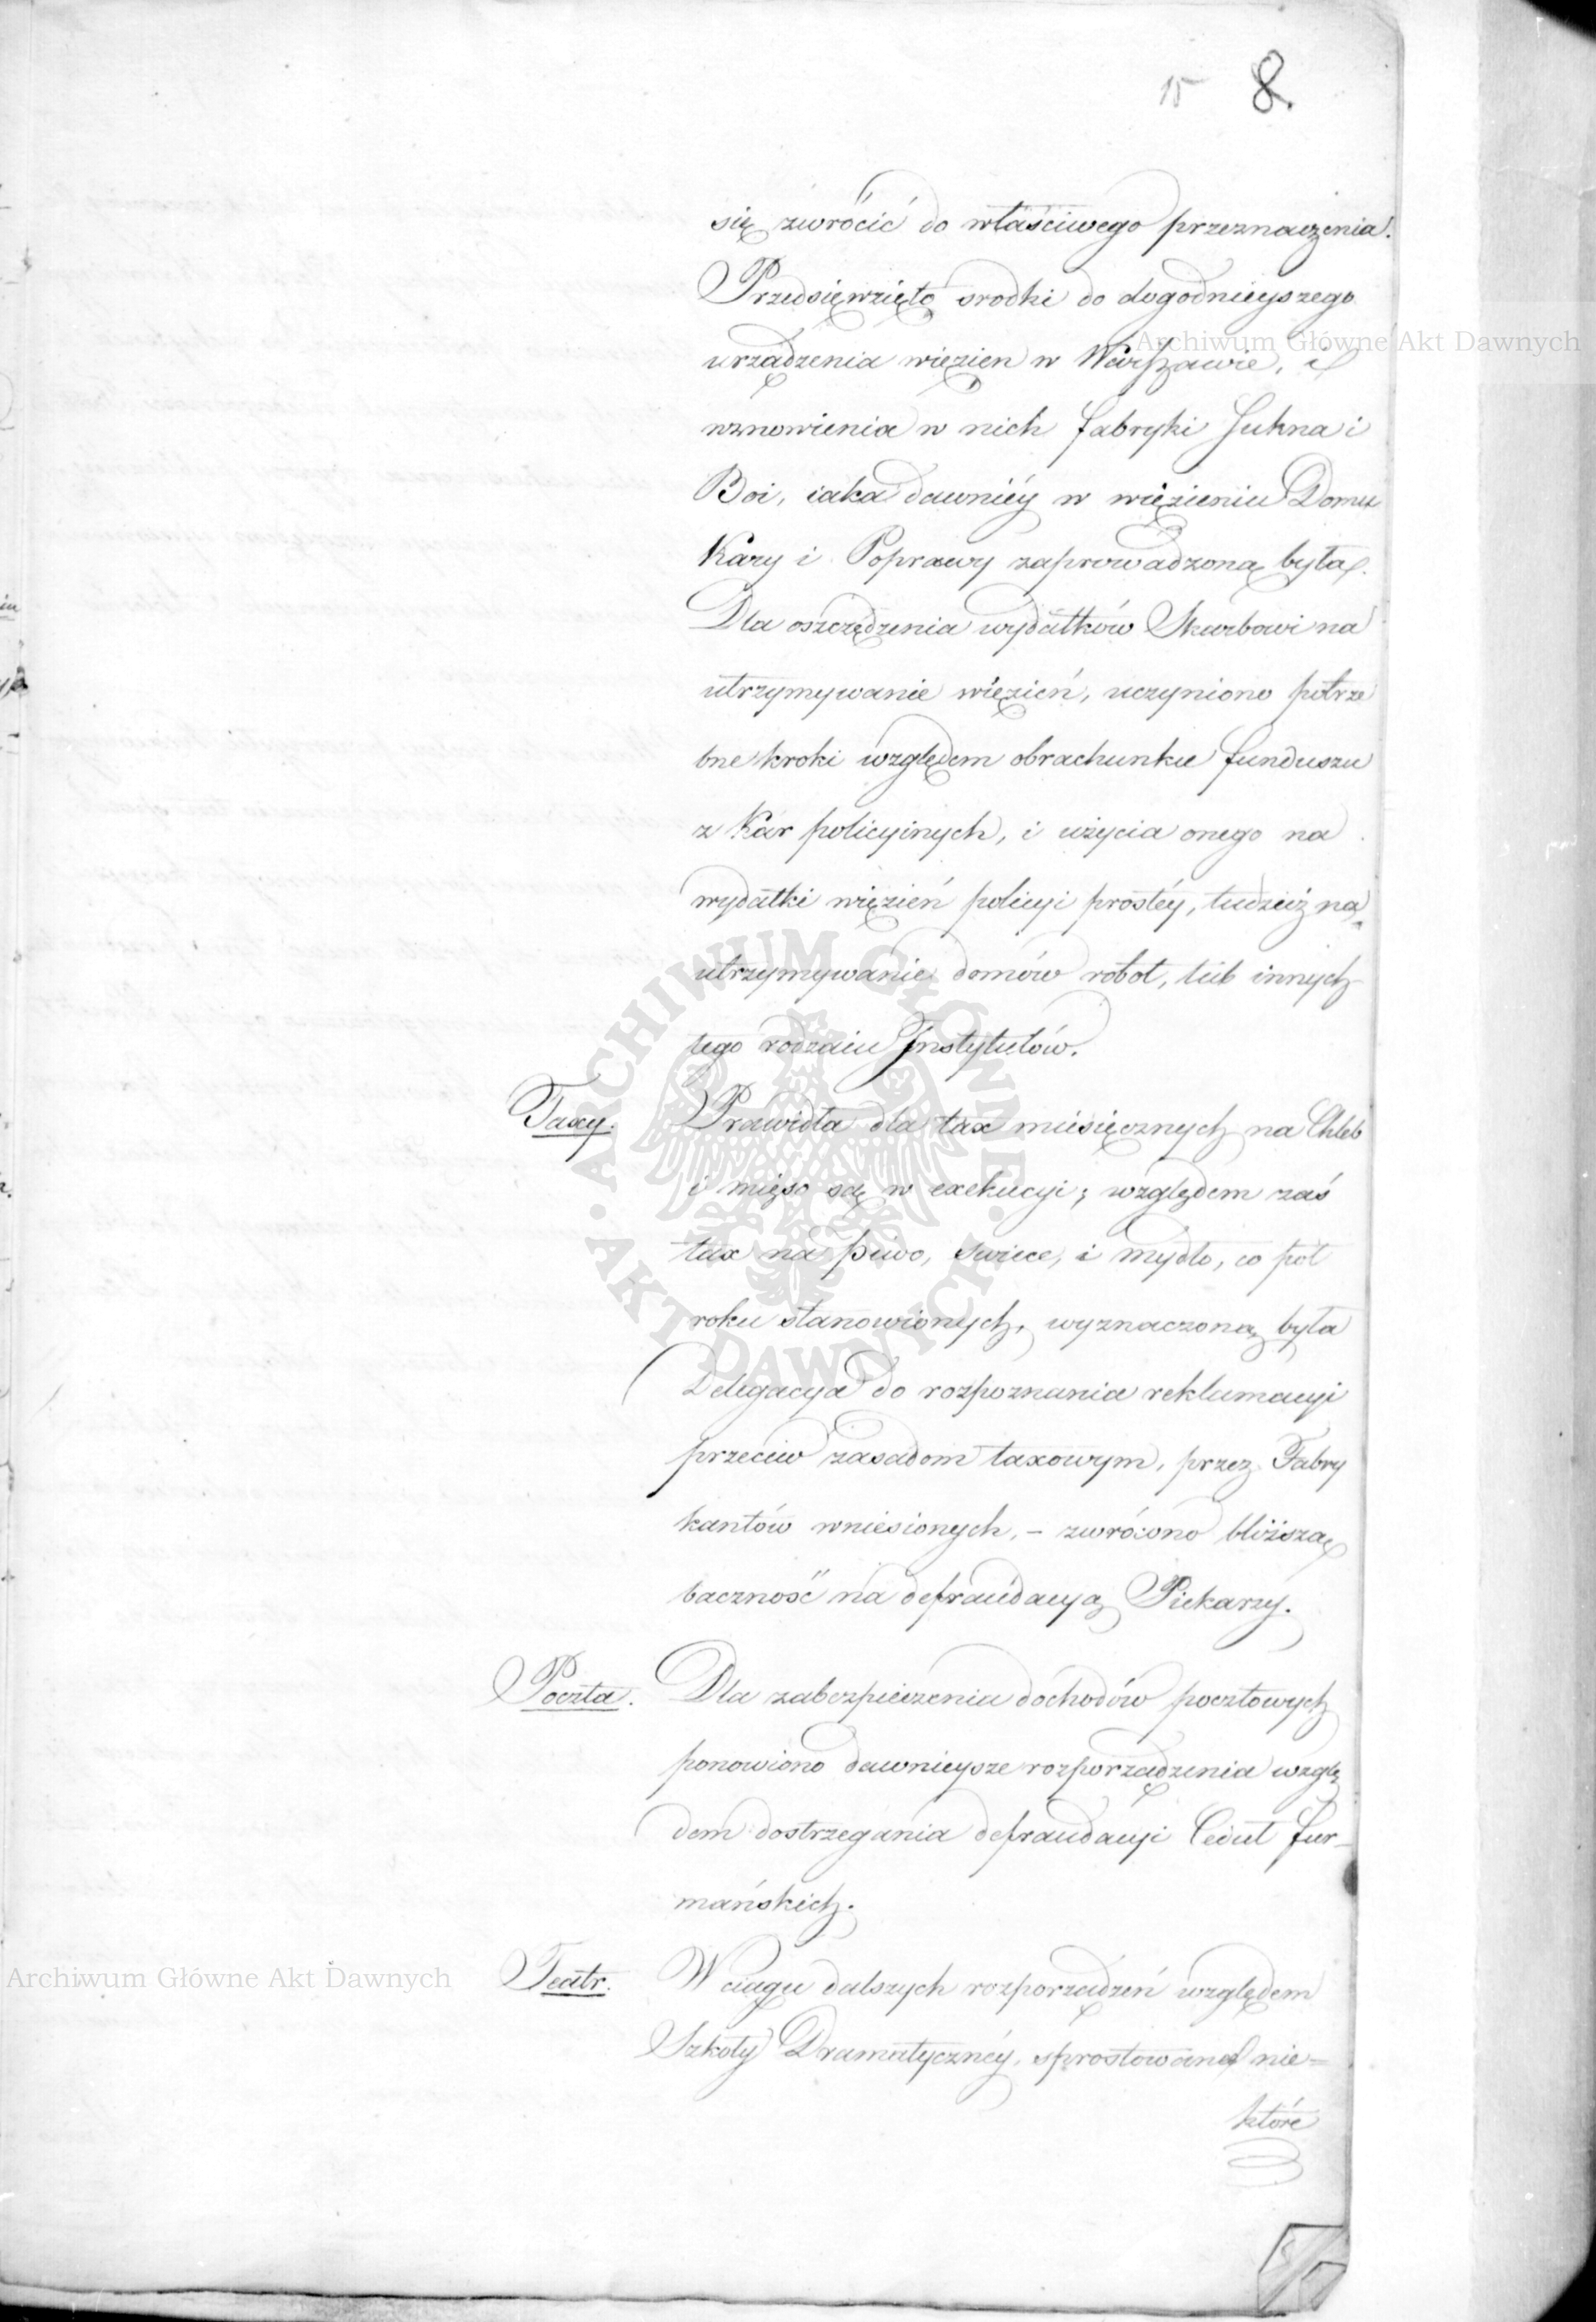 15 8.
się zwrócić do właściwego przeznaczenia.
Przedsięwzięto srodki do dogodnieyszego
urządzenia więzien w Warszawie, i
wznowienia w nich fabryki Sukna i
Boi, iaka dawniéy w więzieniu Domu
Kary i Poprawy zaprowadzoną była.
Dla oszczędzenia wydatków Skarbowi na
utrzymywanie więzień, uczyniono potrze
bne kroki względem obrachunku funduszu
z Kar policyinych, i użycia onego na
wydatki więzień policyi prostéy, tudzież na
utrzymywanie domów robot, lub innych
tego rodzaiu Instytutów.
Taxy. Prawidła dla tax miesięcznych na Chleb
i mięso są w exekucyi; względem zaś
tax na piwo, swiece, i mydło, co pół
roku stanowionych, wyznaczoną była
Delegacya do rozpoznania reklamacyi
przeciw zasadom taxowym, przez Fabry
kantów wniesionych, – zwrócono bliższą
baczność na defraudacyą Piekarzy.
Poczta. Dla zabezpieczenia dochodów pocztowych
ponowiono dawnieysze rozporządzenia wzglę
dem dostrzegania defraudacyi Cedul fur-
mańskich.
Teatr. W ciągu dalszych rozporządzeń względem
Szkoły Dramatycznéy, sprostowane nie=
które
Archiwum Główne Akt Dawnych
ARCHIWUM GŁÓWNE AKT DAWNYCH
Archiwum Główne Akt Dawnych